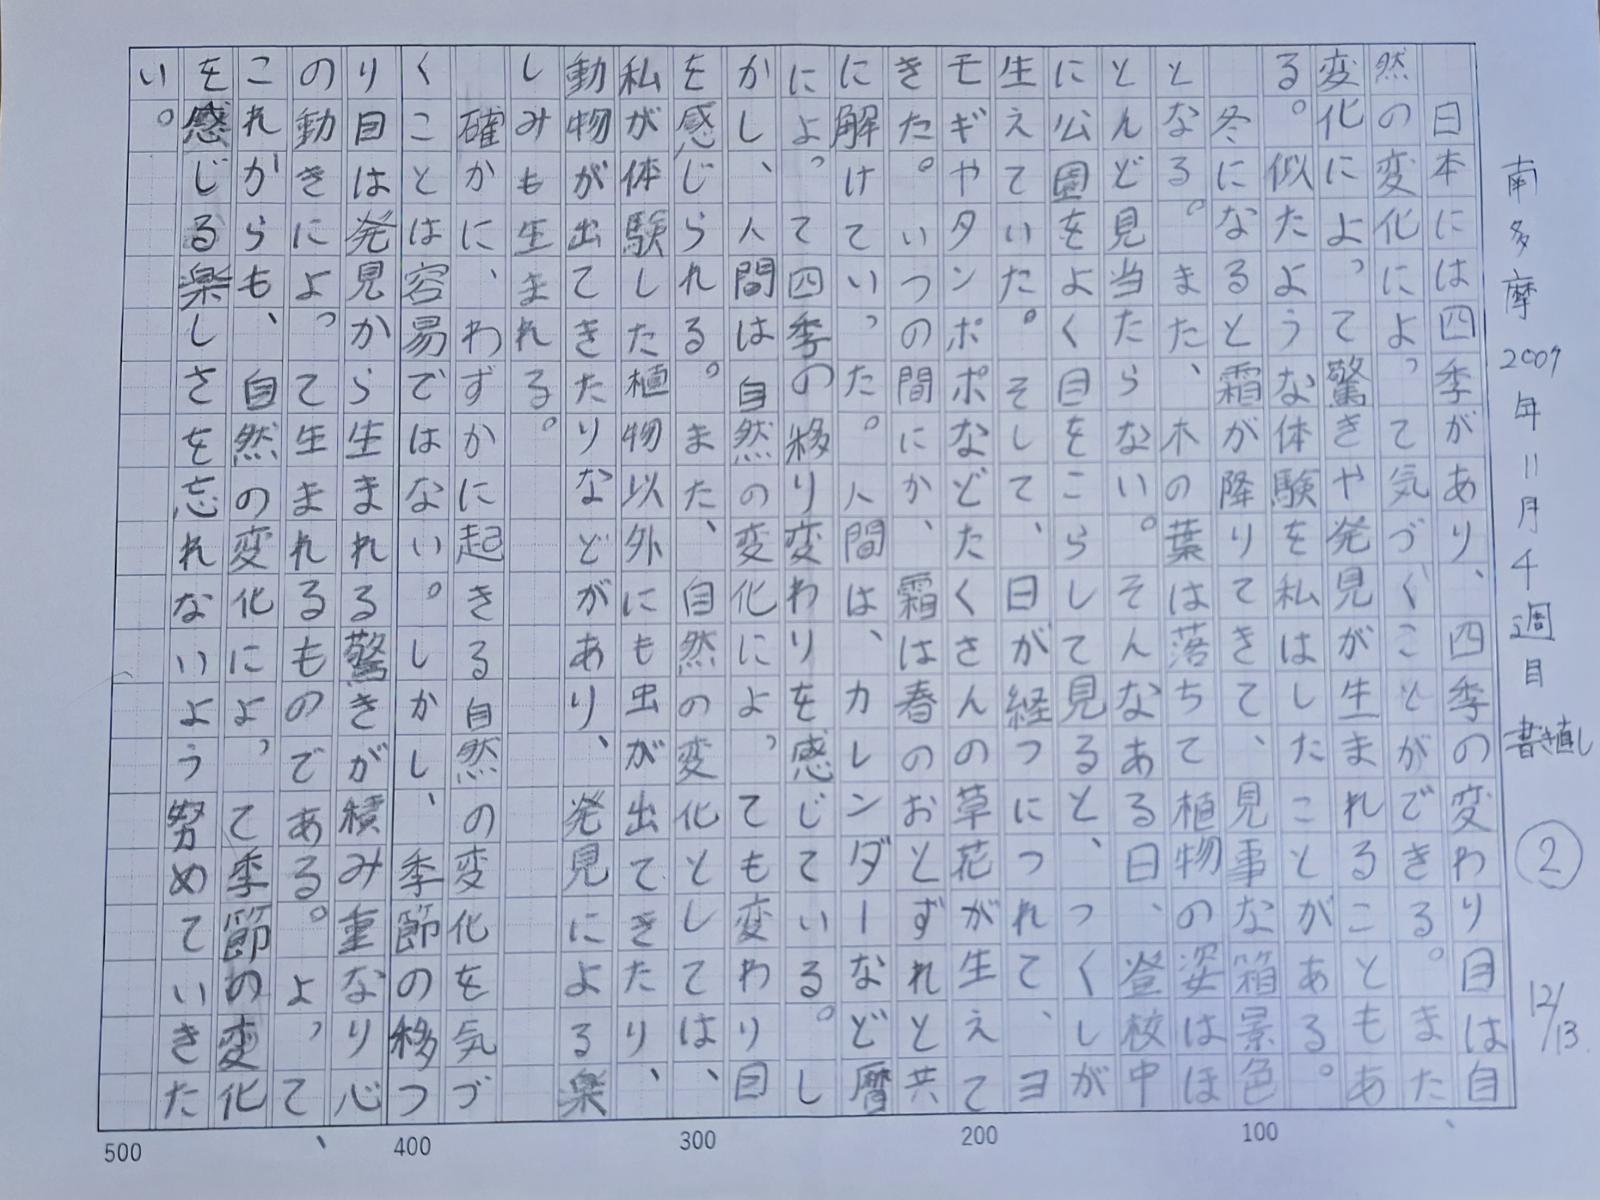 南多摩2007年11月4週目 書き直し ② 12/13
　日本には四季があり、四季の変わり目は自
然の変化によって気づくことができる。また
変化によって驚きや発見が生まれることもあ
る。似たような体験を私はしたことがある。
　冬になると霜が降りてきて、見事な箱景色
となる。また、木の葉は落ちて植物の姿はほ
とんど見当たらない。そんなある日、登校中
に公園をよく目をこらして見ると、つくしが
生えていた。そして、日が経つにつれて、ヨ
モギやタンポポなどたくさんの草花が生えて
きた。いつの間にか、霜は春のおとずれと共
に解けていった。人間は、カレンダーなど暦
によって四季の移り変わりを感じている。し
かし、人間は自然の変化によっても変わり目
を感じられる。また、自然の変化としては、
私が体験した植物以外にも虫が出てきたり、
動物が出てきたりなどがあり、発見による楽
しみも生まれる。
　確かに、わずかに起きる自然の変化を気づ
くことは容易ではない。しかし、季節の移つ
り目は発見から生まれる驚きが積み重なり心
の動きによって生まれるものである。よって、
これからも、自然の変化によって季節の変化
を感じる楽しさを忘れないよう努めていきた
い。
100
200
300
400
500